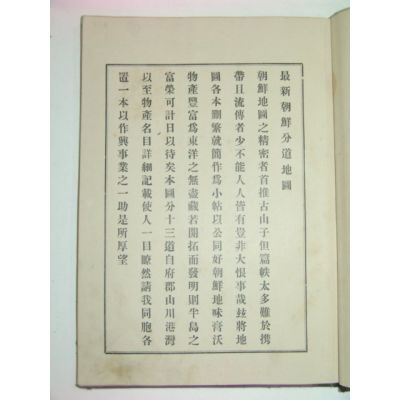 最新朝鮮分道地圖
朝鮮地圖之精密者首推古山子但篇帙太多難於携
帶且流傳者少不能人人皆有豈非大恨事哉玆將地
圖各本刪繁就簡作爲小帖以公同好朝鮮地味膏沃
物產豐富爲東洋之無盡藏若開拓而發明則半島之
富榮可計日以待矣本圖分十三道自府郡山川港灣
以至物產名目詳細記載使人一目瞭然請我同胞各
置一本以作興事業之一助是所厚望